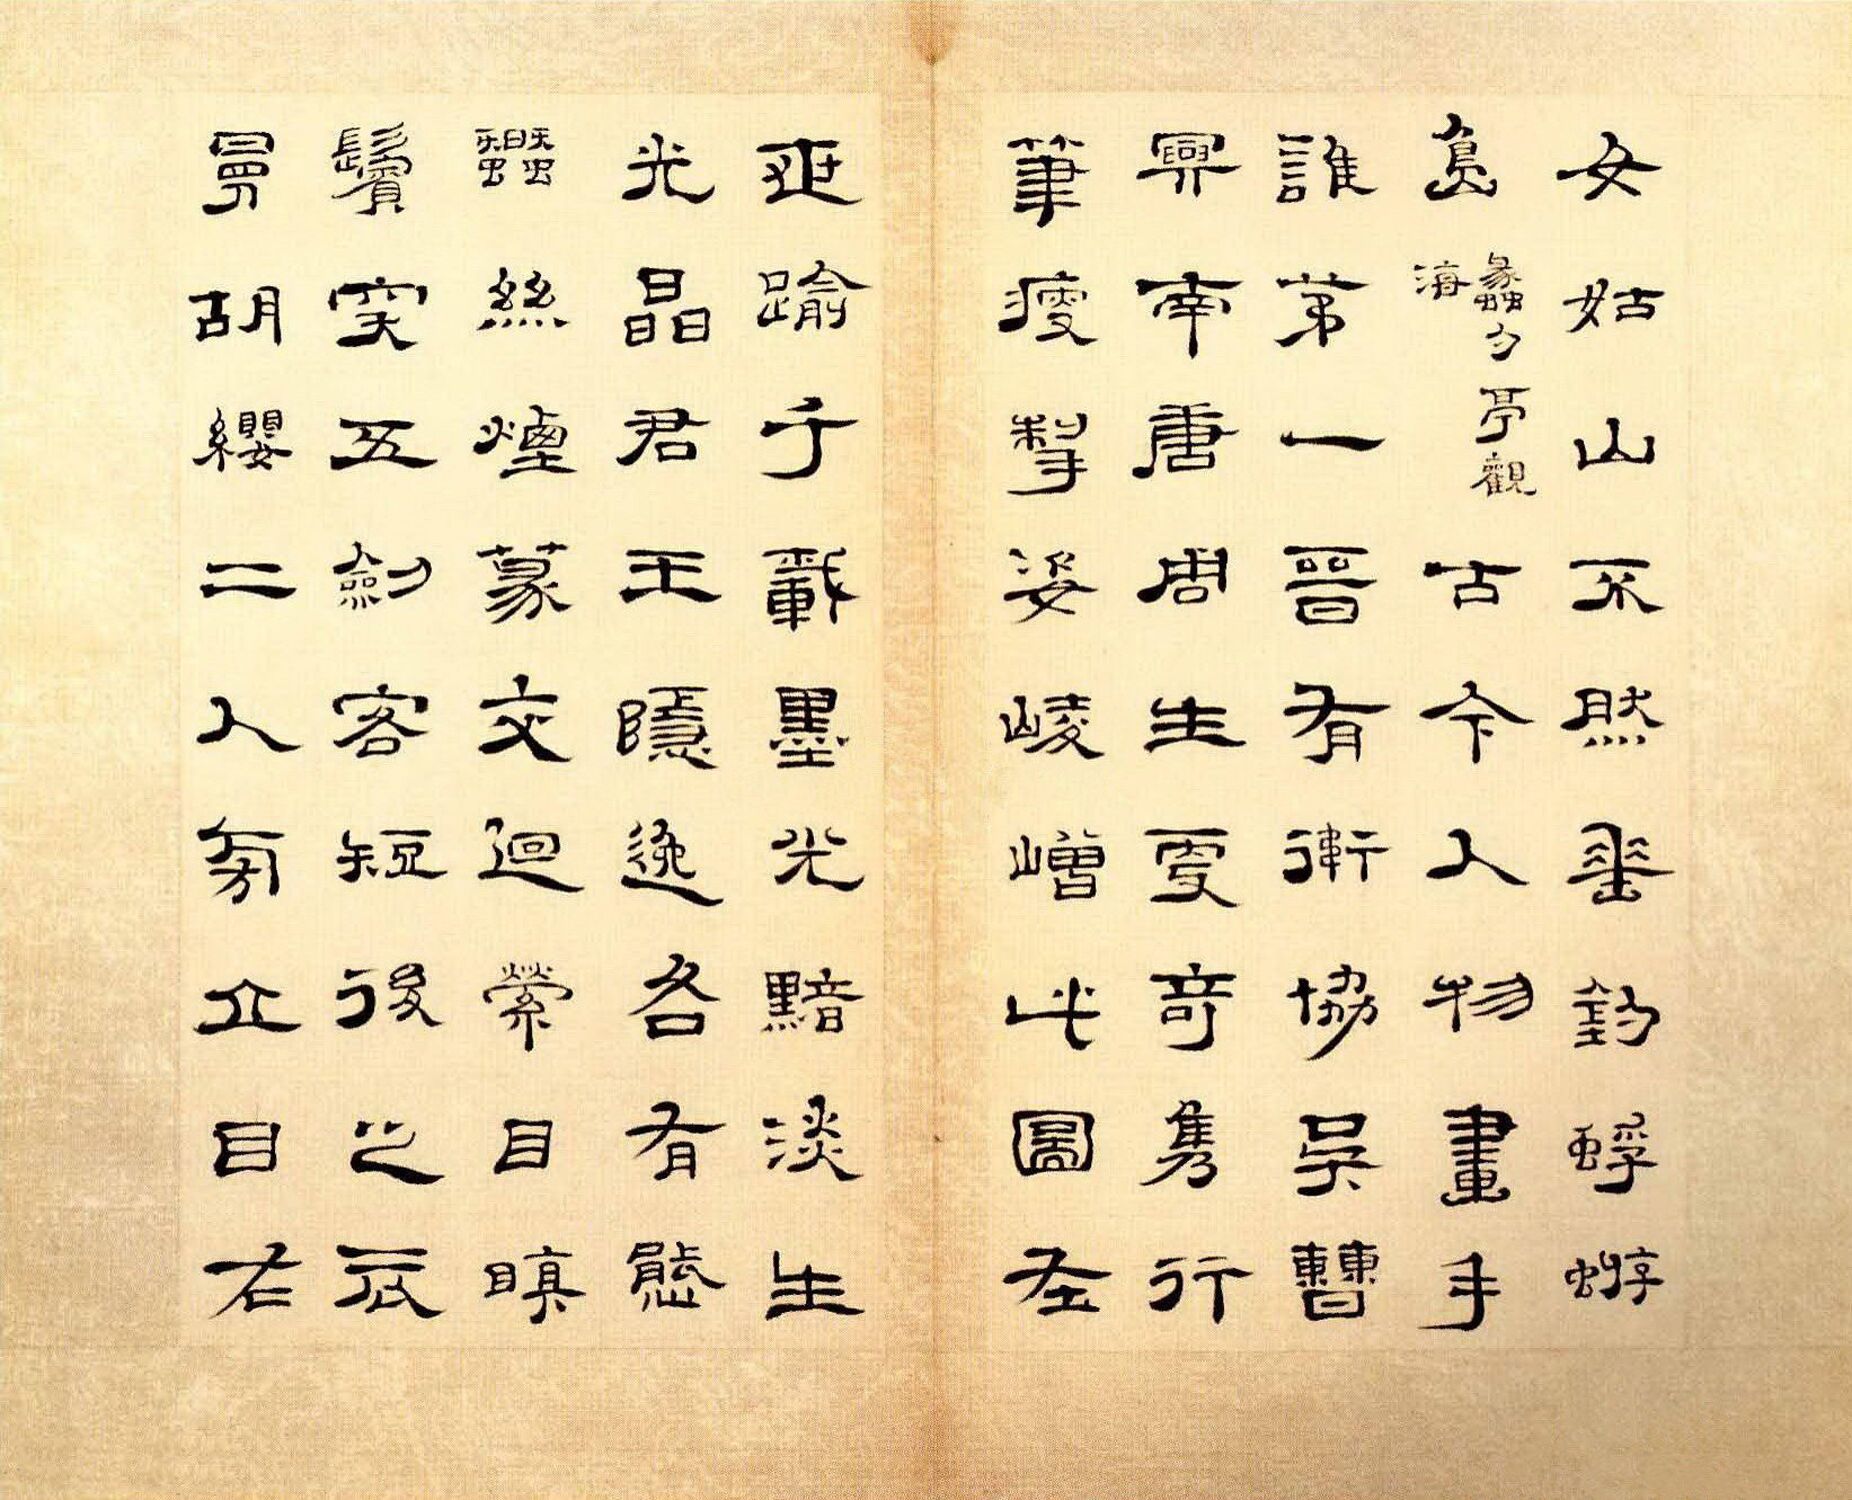 女姑山不然垂釣蜉蝣
島蠡勺亭觀海古今人物畫手
誰第一晉有衛協吳曹
興南唐周生更奇雋行
筆瘦掣姿崚嶒此圖在
延踰千載墨光黯淡生
光晶君王隱逸各有態
蠶絲煙篆交迴縈目瞋
鬢突五劍客短後之衣
曼胡纓二人旁立目右